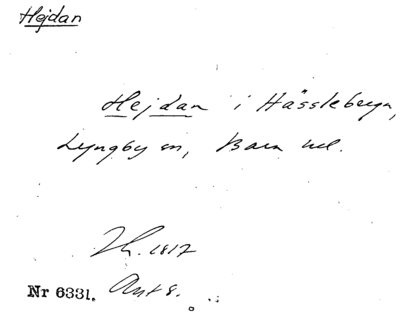 Hejdan
Hejdan i Hässleberga,
Lyngby sn, Bara hd.
Th. 1817
Nr 6331. Ant 8.